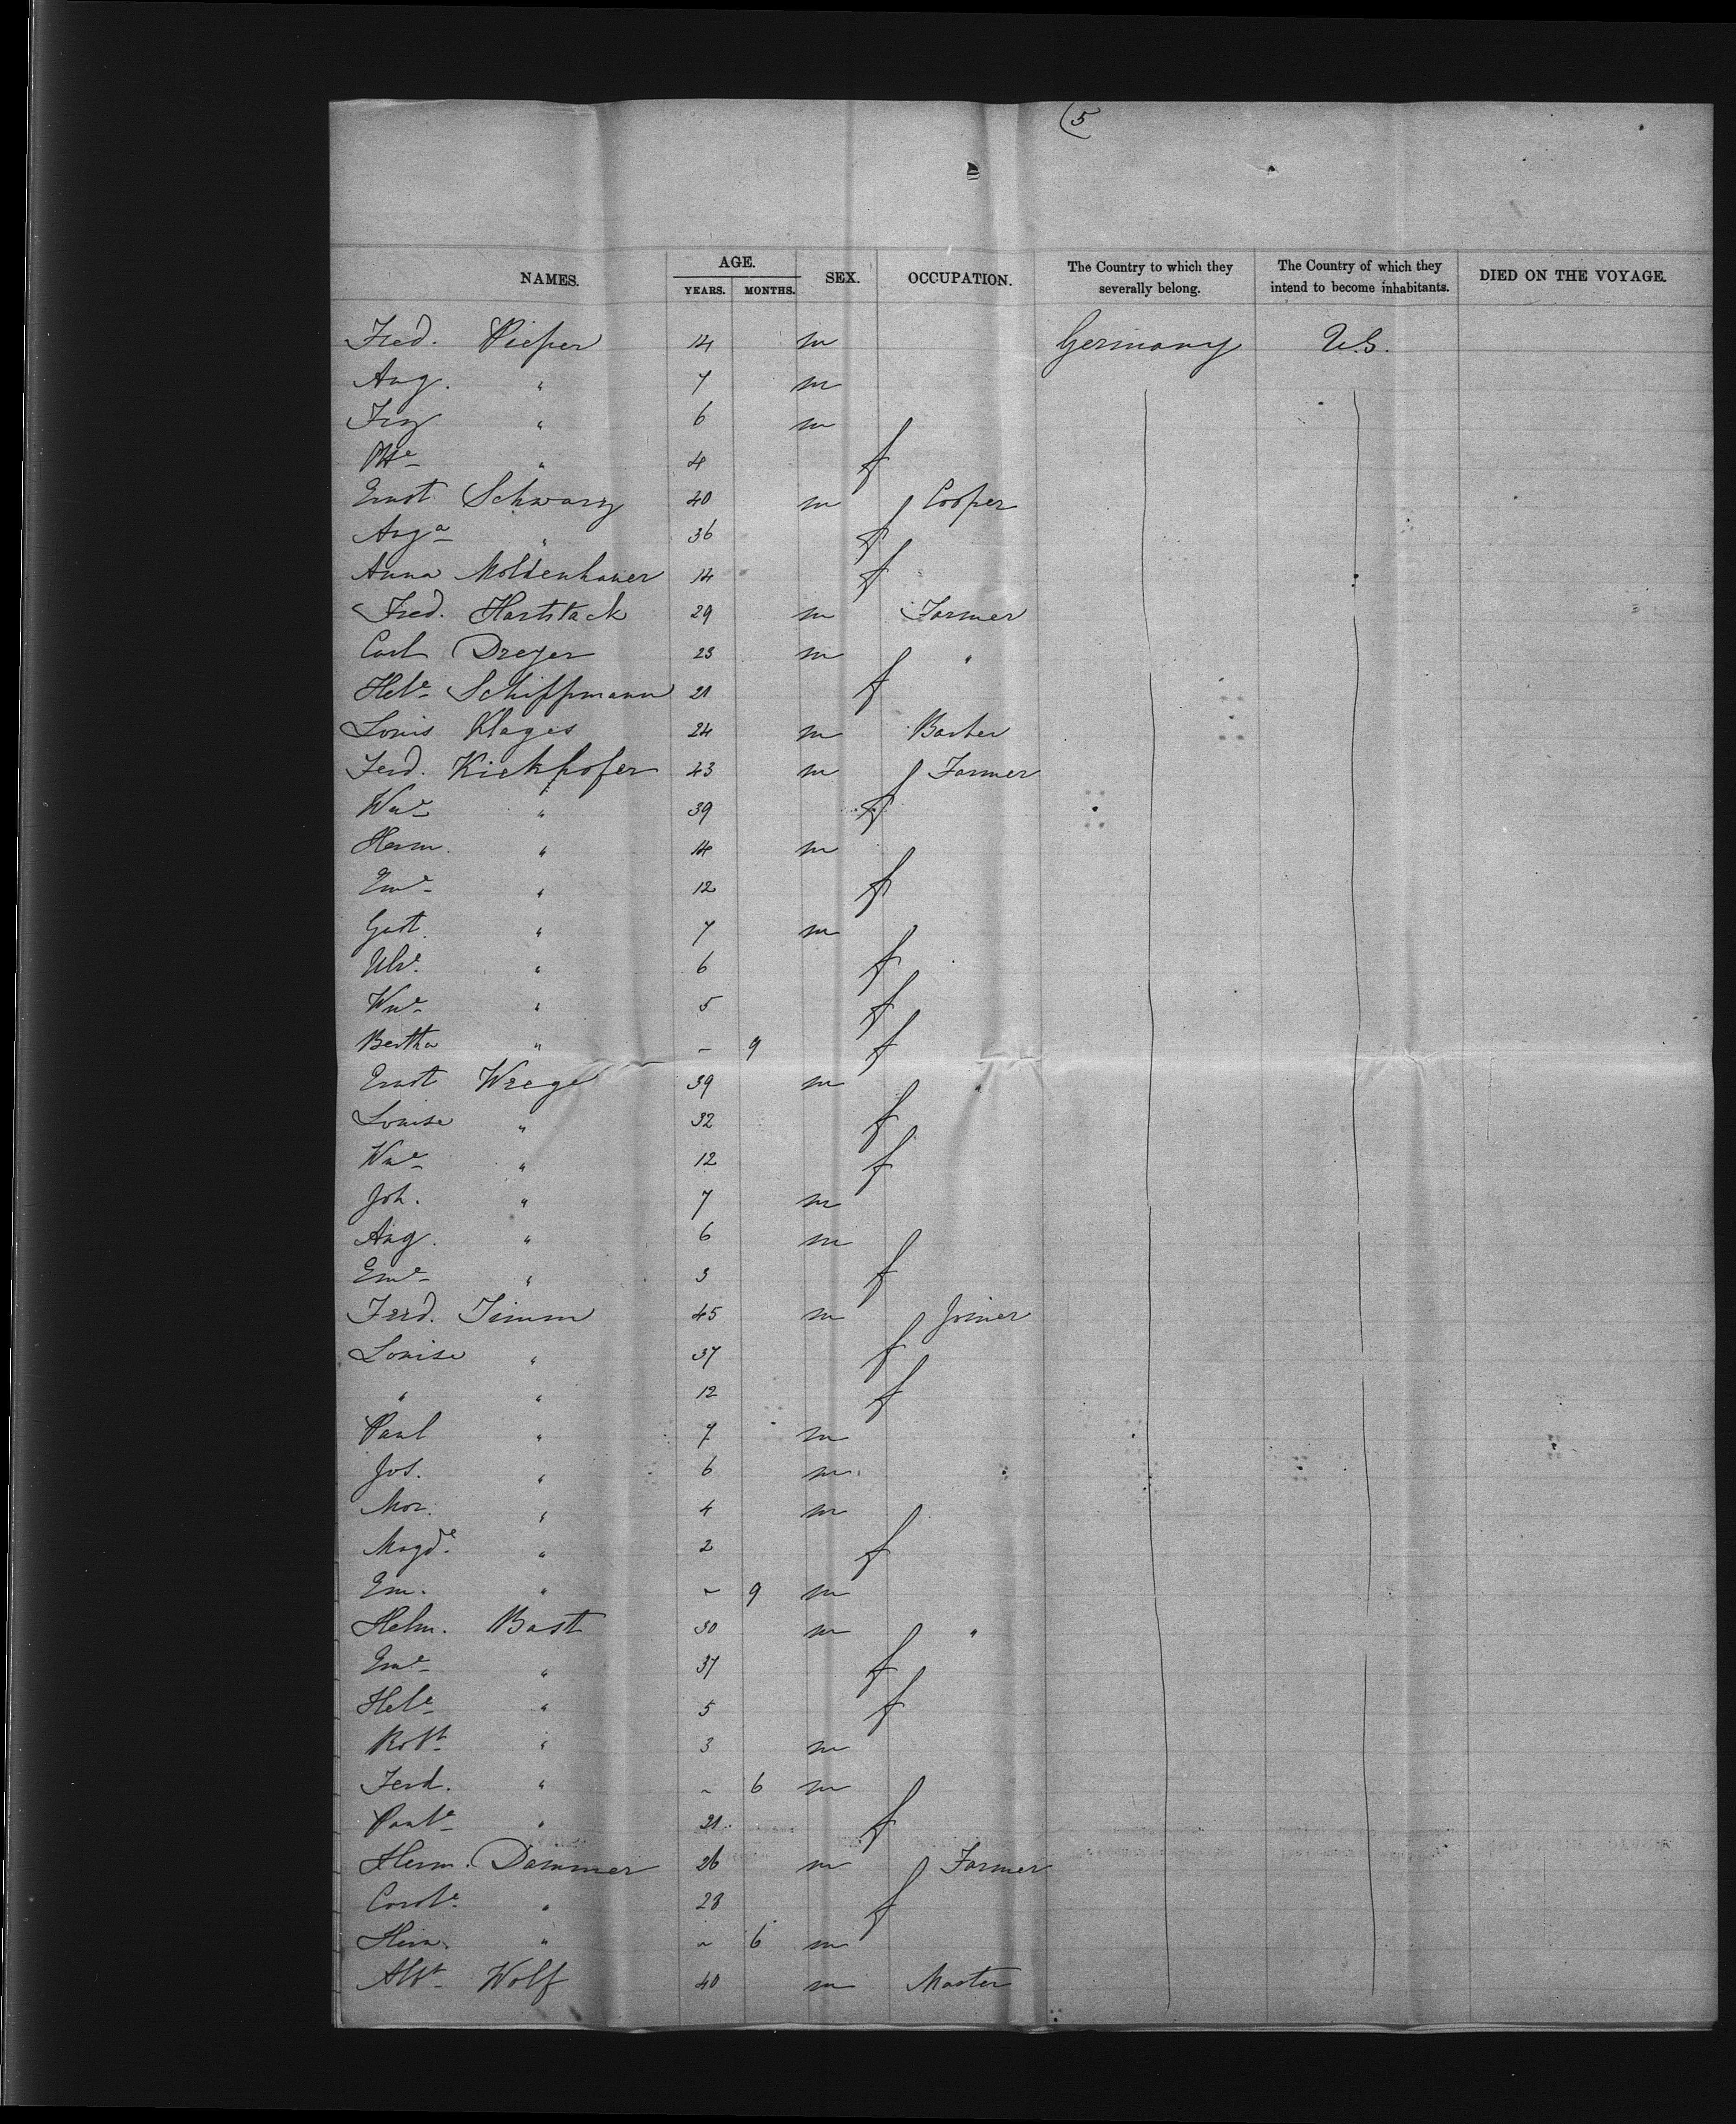 (5
NAMES. AGE. YEARS. MONTHS. SEX. OCCUPATION. The Country to which they severally belong. The Country of which they intend to become inhabitants. DIED ON THE VOYAGE.
Fred. Pieper 14 m Germany U.S.
Aug. " 7 m
" 6 m
" 4 f
Ernst Schwarz 40 m Cooper
Auga " 36 f
Anna Moldenhauer 14 f
Fred. Hartstack 29 m Farmer
Carl Dreyer 23 m "
Hele Schiffmann 21 f
Louis Klages 24 m
Ferd. Kiekhofer 43 m Farmer
Wne " 39 f
Herm. " 14 m
Eme " 12 f
Gust. " 7 m
Ulre. " 6 f
Wne " 5 f
Bertha " - 9 f
Ernst Wrege 39 m "
Louise " 32 f
Wne " 12 f
Joh. " 7 m
Aug. " 6 m
Eme " 3 f
Ferd. Timm 45 m Joiner
Louise " 37 f
" " 12 f
Paul " 7 m
Jos. " 6 m
Mor. " 4 m
Magde. " 2 f
Em. " - 9 m
Helm. Bast 30 m "
Eme " 37 f
Hele " 5 f
Robt " 3 m
Ferd. " - 6 m
Paule " 21 f
Herm. Dammer 26 m Farmer
Carole. " 23 f
Herm. " - 6 m
Albt Wolf 40 m Master